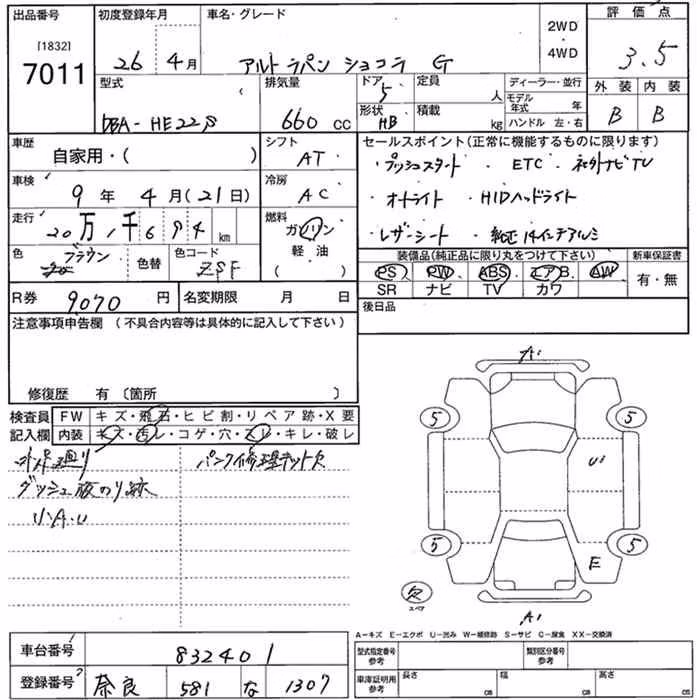 出品番号 初度登録年月 車名・グレード 評価点
[1832]
7011
26 4月 アルトラパン ショコラ G
2WD
4WD
3.5
型式 排気量 ドア 定員 ディーラー・並行 外装 内装
DBA-HE22S 660 cc 5 人 モデル年式 年 B B
形状 HB 積載 kg ハンドル 左・右
車歴 シフト セールスポイント(正常に機能するものに限ります)
自家用・( ) AT
・プッシュスタート ・ETC ・社外ナビTV
車検 冷房
9年 4月(21日) AC
・オートライト ・HIDヘッドライト
走行 燃料
20万 千694 km ガソリン
・レザーシート ・純正14インチアルミ
軽油
( )
色 ブラウン 色替 色コード ZSF
装備品(純正品に限り丸をつけて下さい) 新車保証書
PS PW ABS エアB AW 有・無
SR ナビ TV カワ
R券 9070円 名変期限 月 日
後日品
注意事項申告欄 (不具合内容等は具体的に記入して下さい)
修復歴 有 〔箇所 〕
検査員 FW キズ・飛石・ヒビ割・リペア跡・X要
記入欄 内装 キズ・汚レ・コゲ・穴・スレ・キレ・破レ
パンク修理キット欠
ダッシュ液のり跡
U・A・U
A1
5 5
U1
5 5
E
欠
スペア
A1
A-キズ E-エクボ U-凹み W-補修跡 S-サビ C-腐食 XX-交換済
車台番号 832401
型式指定番号 参考 類別区分番号 参考
登録番号 奈良 581 な 1307
車庫証明用 参考 長さ cm 幅 cm 高さ cm